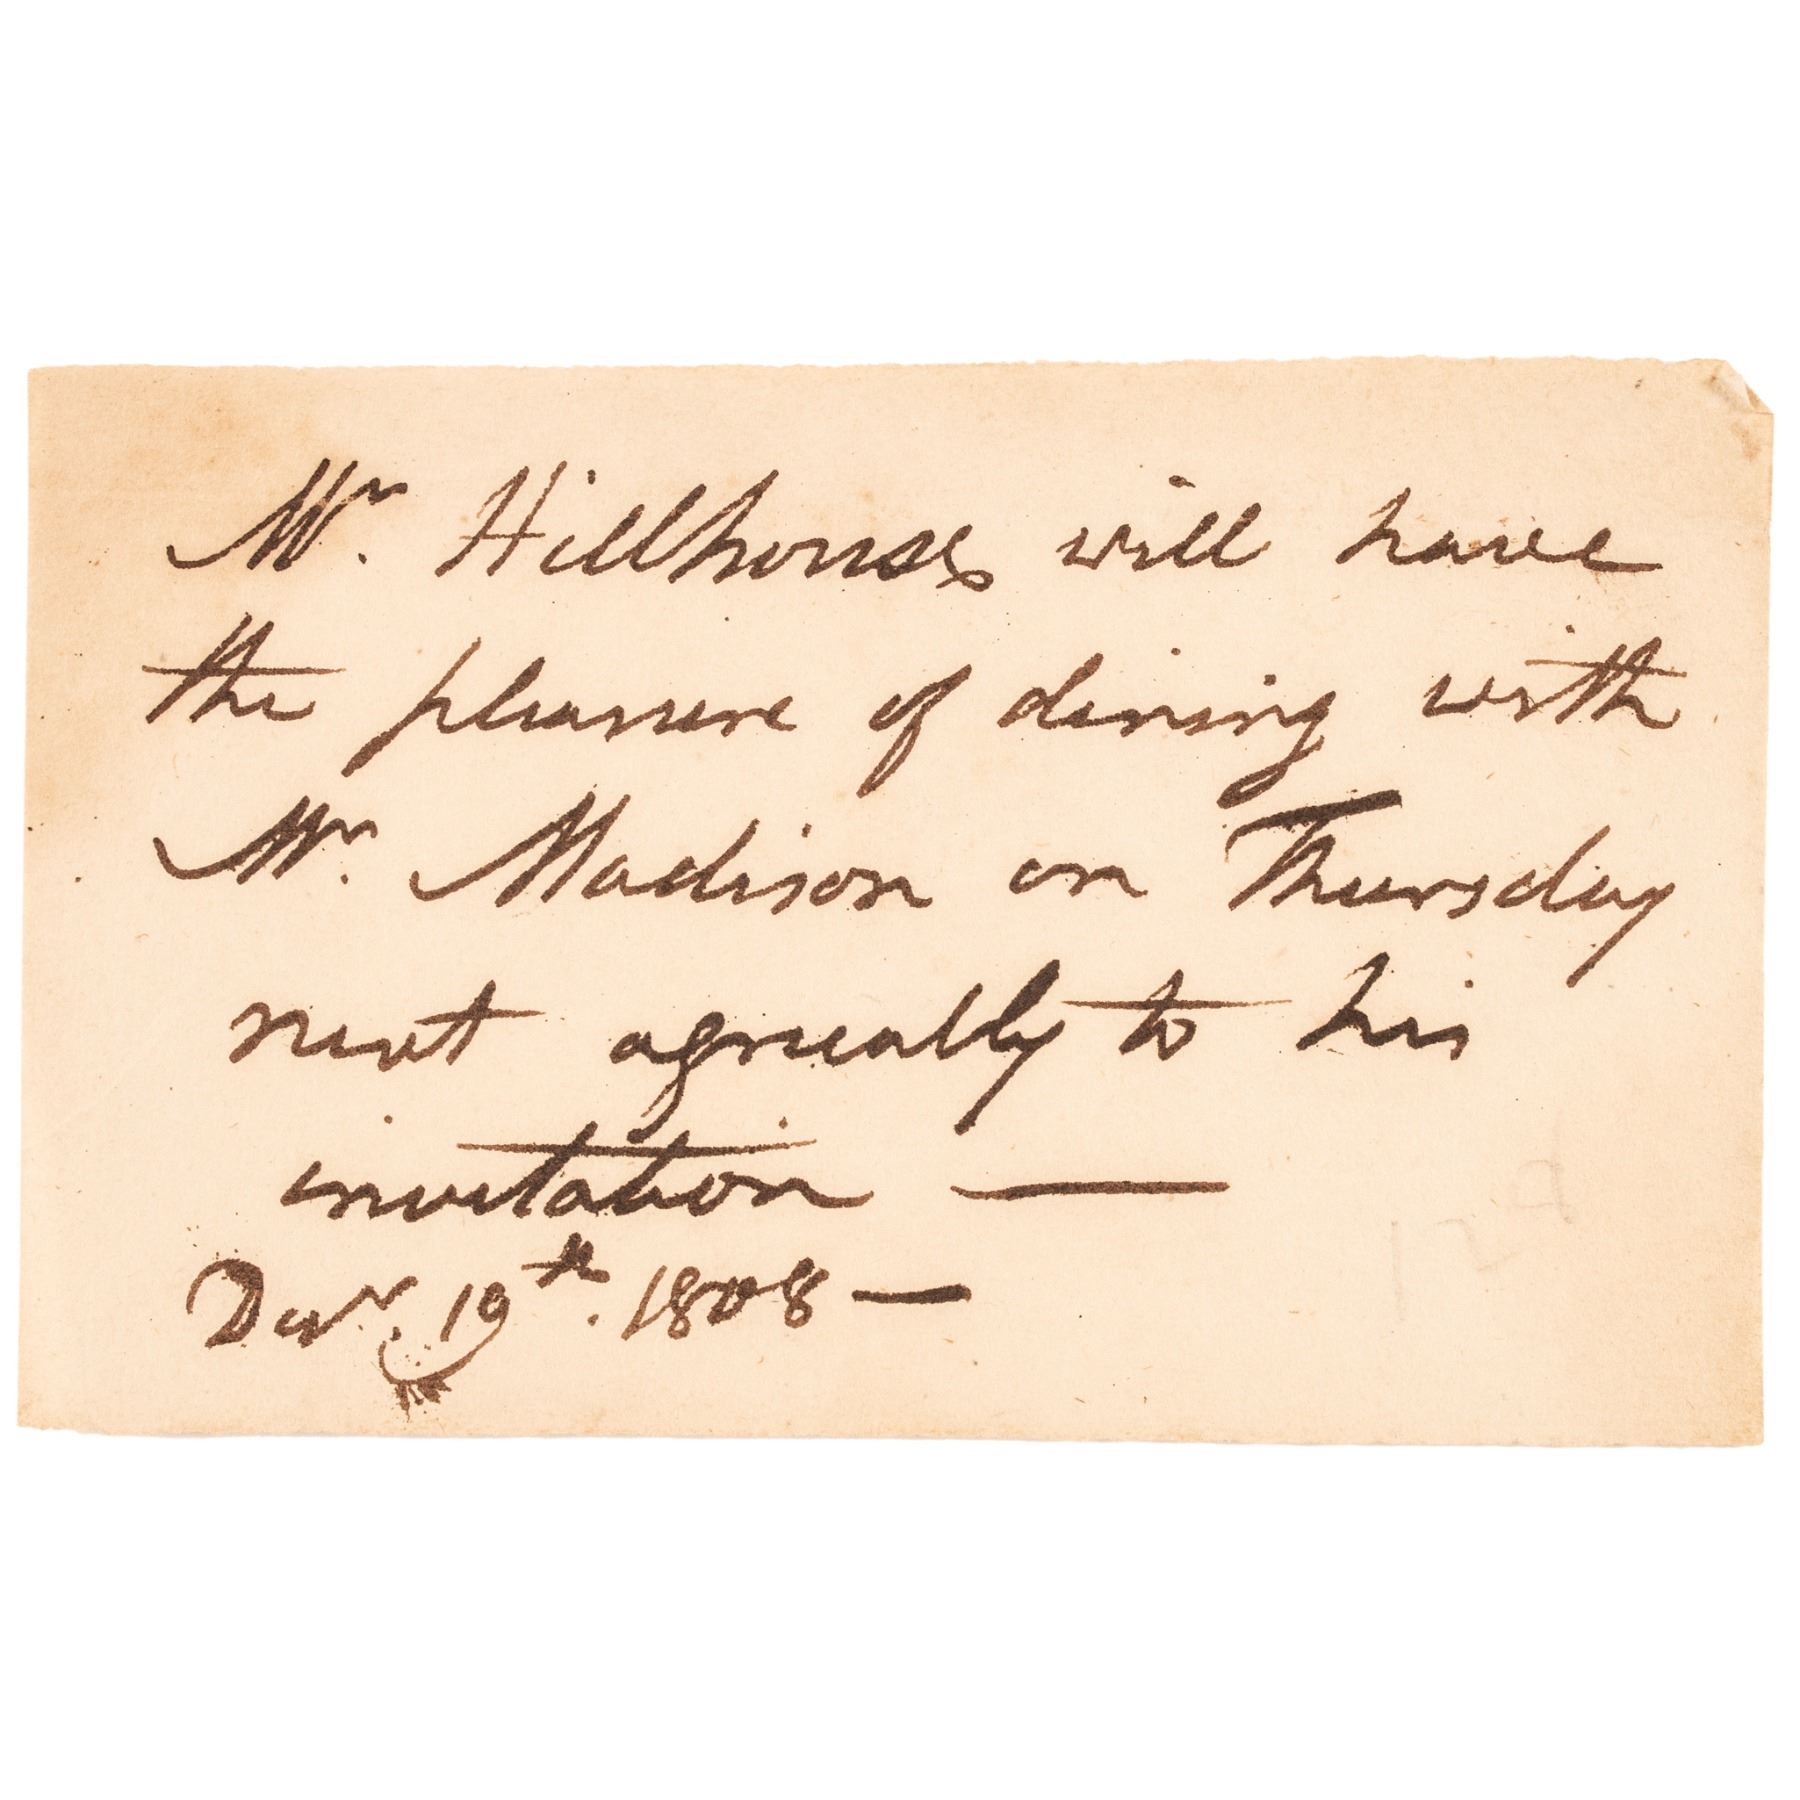 Mr. Hillhouse will have
the pleasure of dining with
Mr. Madison on Thursday
next agreeably to his
invitation —
Decr. 19th. 1808 —